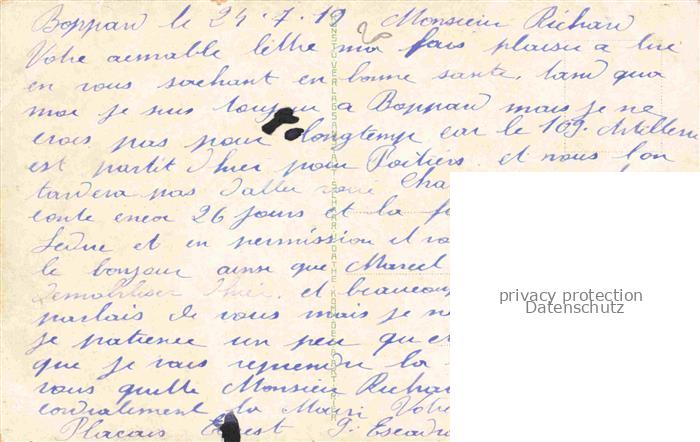 Boppard le 24.7.19 Monsieur Richard
Votre aimable lettre ma fais plaisir a lire
en vous sachant en bonne santé, tand qua
moi je suis toujour a Boppard mais je ne
crois pas pour longtemp car le 109. Artillerie
est partit d'hier pour Poitiers et nous l'on
tardera pas d'aller voire Cha
conte encor 26 jours et la
Leduc et en permission il
le bonjour ainsi que Marcel
Demobiliser hier, et beaucoup
parlais de vous mais je ne
je patience un peu
que je vais reprendre la
vous quitte Monsieur Richar
cordialement la Main Votre
Placais Ernest
privacy protection
Datenschutz